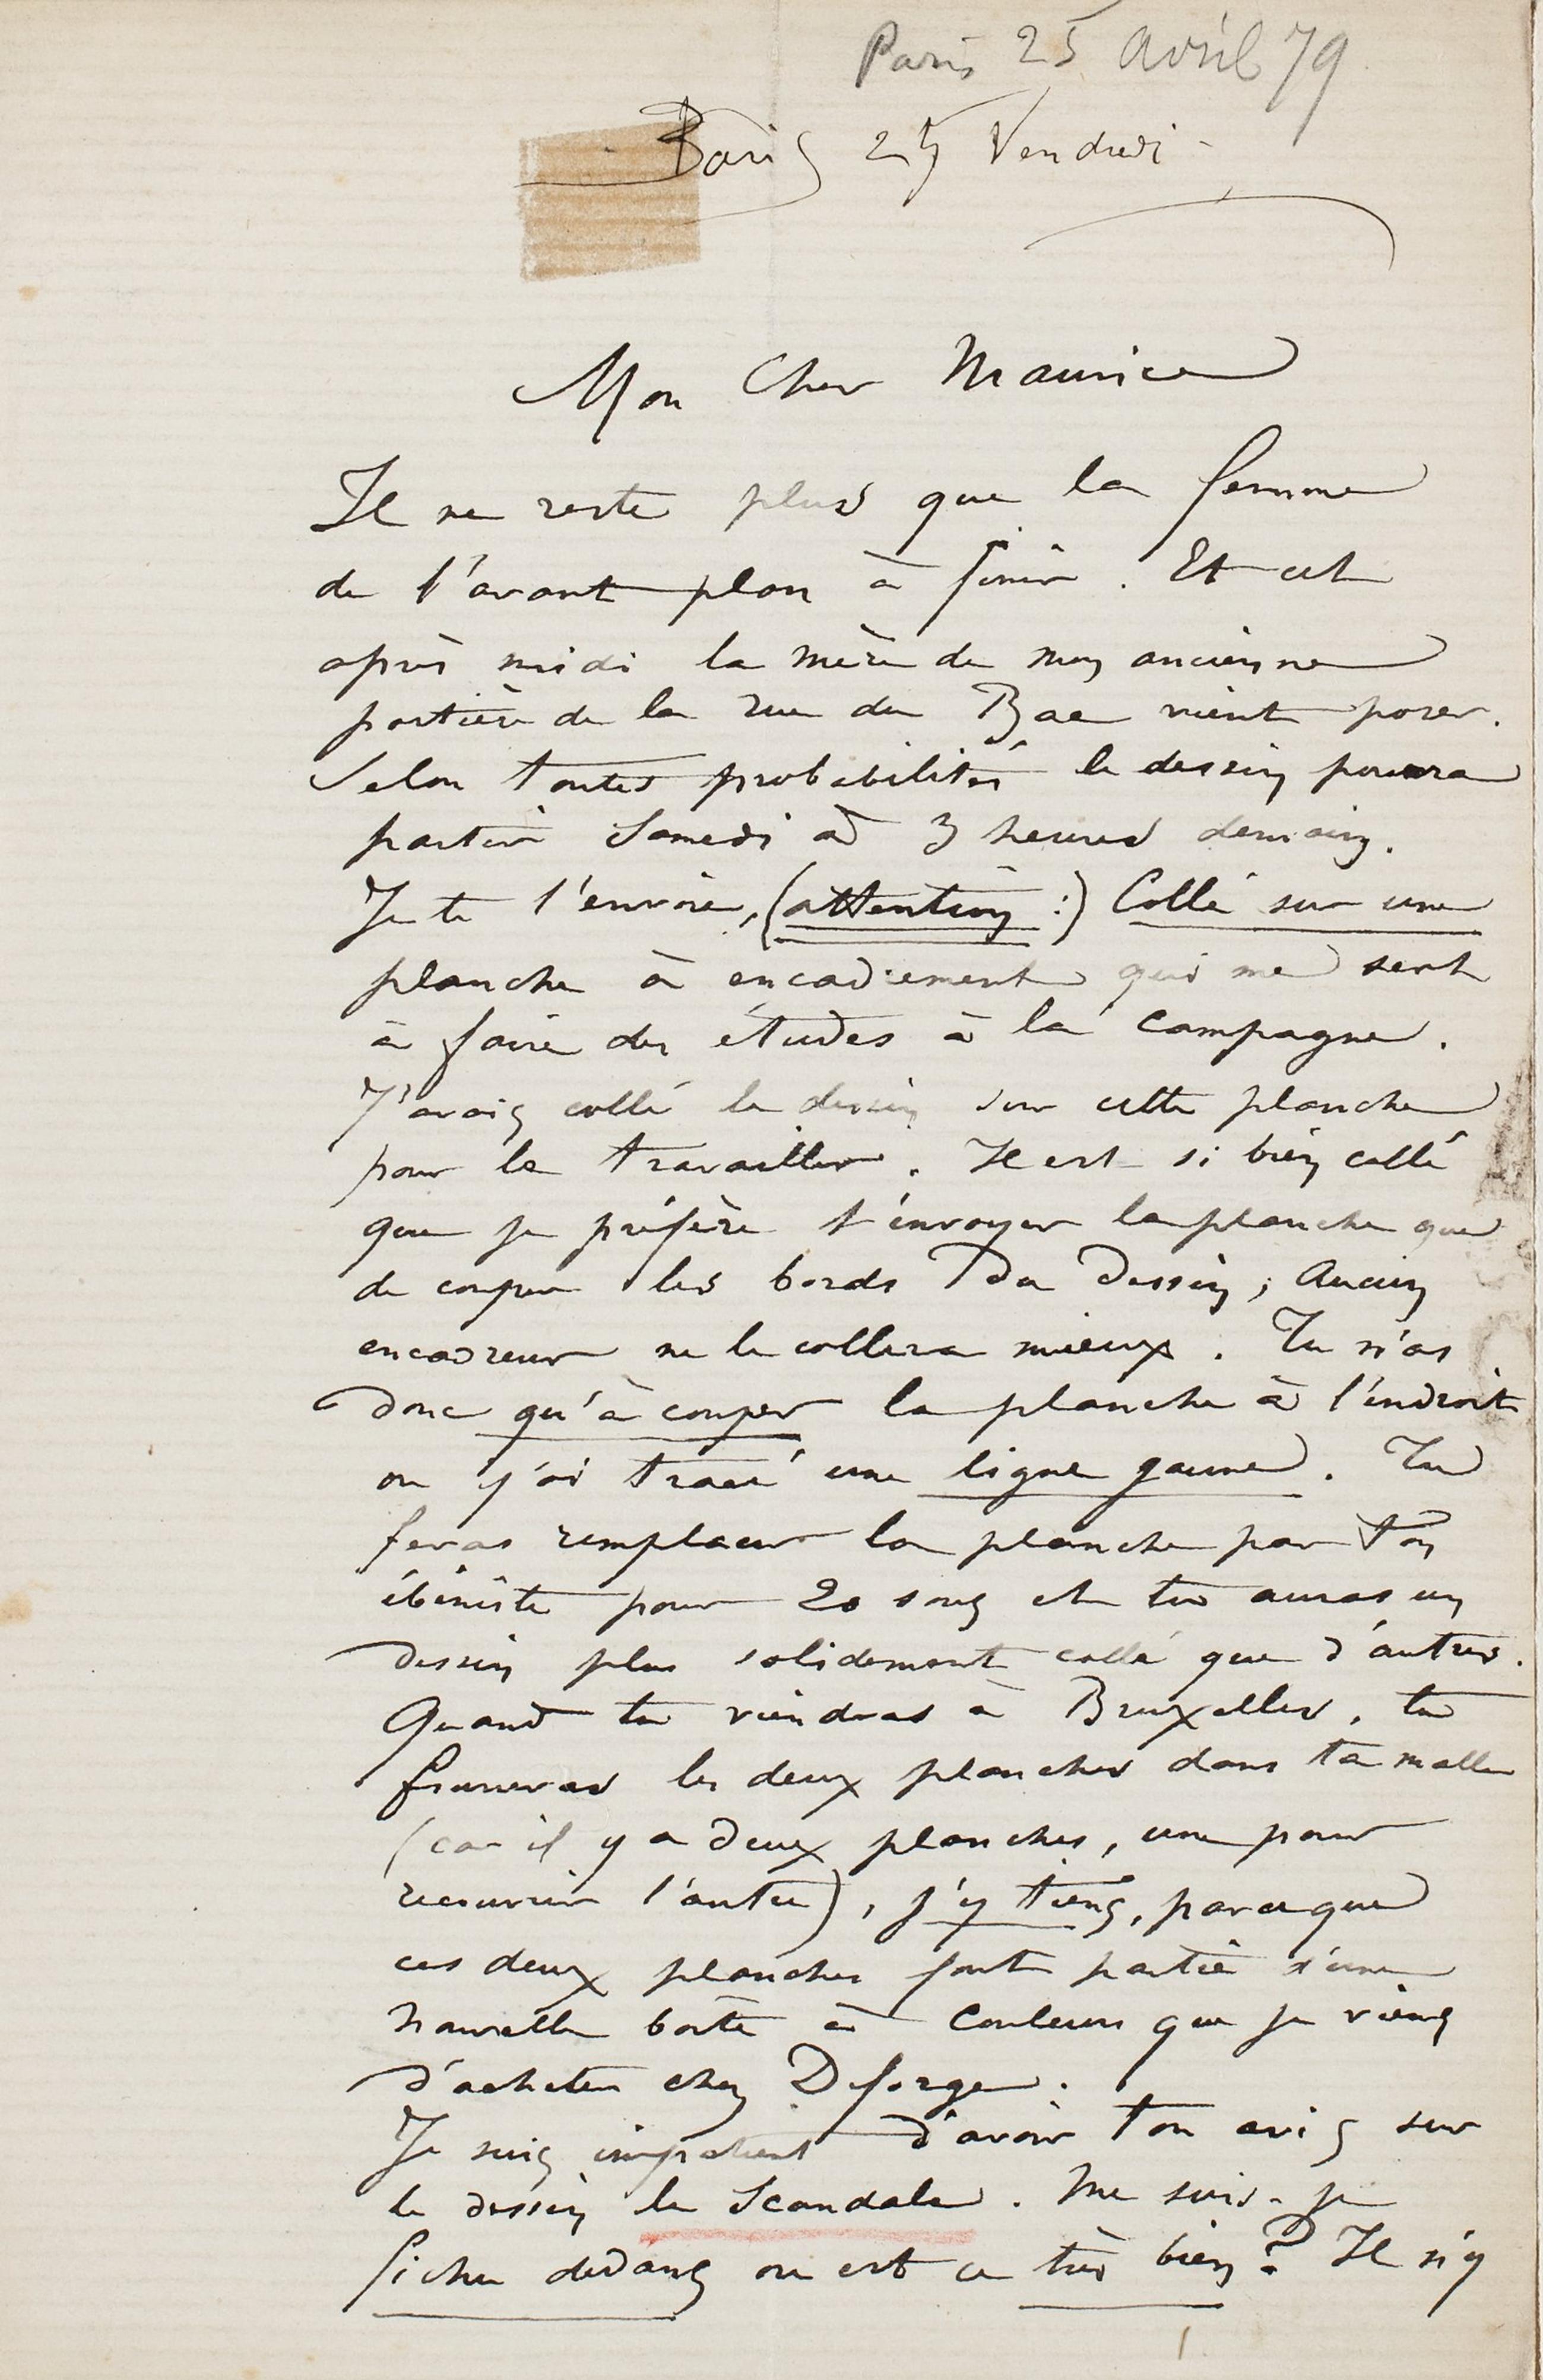 Paris 25 Avril 79
Paris 25 Vendredi
Mon Cher Maurice
Il ne reste plus que la femme
de l'avant plan à finir. Et cet
après midi la mère de mon ancienne
portière de la rue du Bac vient poser.
Selon toutes probabilités le dessin pourra
partir Samedi à 3 heures demain.
Je te l'envoie, (attention :) Collé sur une
planche à encadrement qui me sert
à faire des études à la campagne.
J'avais collé le dessin sur cette planche
pour le travailler. Il est si bien collé
que je préfère t'envoyer la planche que
de couper les bords du Dessin ; Aucun
encadreur ne le collera mieux. Tu n'as
donc qu'à couper la planche à l'endroit
ou j'ai tracé une ligne jaune. Tu
feras remplacer la planche par ton
ébéniste pour 20 sous et tu auras un
dessin plus solidement collé que d'autres.
Quand tu viendras à Bruxelles, tu
fourreras les deux planches dans ta malle
(car il y a deux planches, une pour
recouvrir l'autre), j'y tiens, parceque
ces deux planches font partie d'une
nouvelle boîte à couleurs que je viens
d'acheter chez Deforge.
Je suis impatient d'avoir ton avis sur
le dessin le Scandale. Me suis-je
fichu dedans ou est ce très bien ? Il n'y